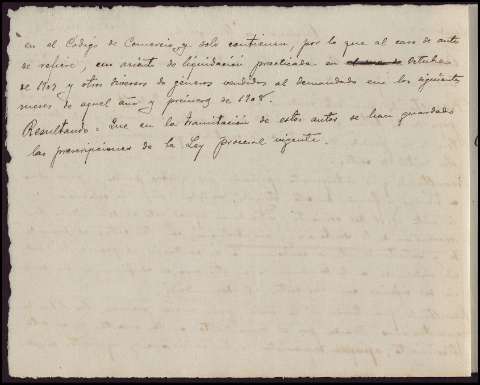 en el Código de Comercio, y solo contienen, por lo que al caso de autos
se refiere, un asiento de liquidación practicada en Octubre
de 1907 y otros diversos de géneros vendidos al demandado en los siguientes
meses de aquel año y primeros de 1908.
Resultando: Que en la tramitación de estos autos se han guardado
las prescripciones de la Ley procesal vigente.